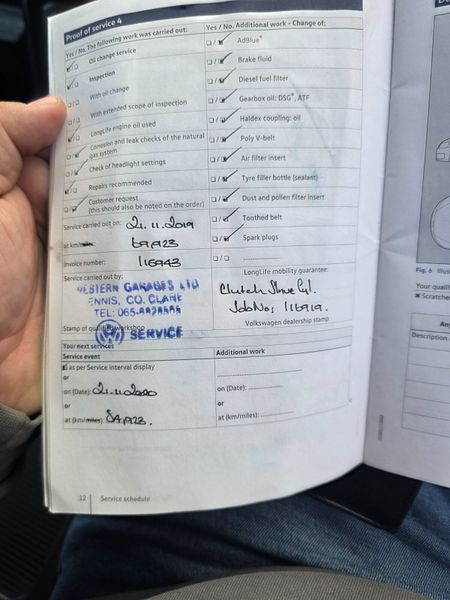 Proof of service 4
Yes / No. The following work was carried out:
Oil change service
Inspection
With oil change
With extended scope of inspection
LongLife engine oil used
Corrosion and leak checks of the natural gas system
Check of headlight settings
Repairs recommended
Customer request
(this should also be noted on the order)
Service carried out on: 21.11.2019
at km/miles 69,923
Invoice number: 116943
Service carried out by:
WESTERN GARAGES LTD
ENNIS, CO. CLARE
TEL: 065-
Stamp of qualified workshop
SERVICE
Yes / No. Additional work - Change of:
AdBlue®
Brake fluid
Diesel fuel filter
Gearbox oil: DSG®, ATF
Haldex coupling: oil
Poly V-belt
Air filter insert
Tyre filler bottle (sealant)
Dust and pollen filter insert
Toothed belt
Spark plugs
LongLife mobility guarantee:
Clutch
Job No: 116919.
Volkswagen dealership stamp
Your next services
Service event
as per Service interval display
or
on (Date): 21.11.2020
or
at (km/miles): 84,923.
Additional work
on (Date):
or
at (km/miles):
12 Service schedule
Fig. 6
Your
Scratche
Description